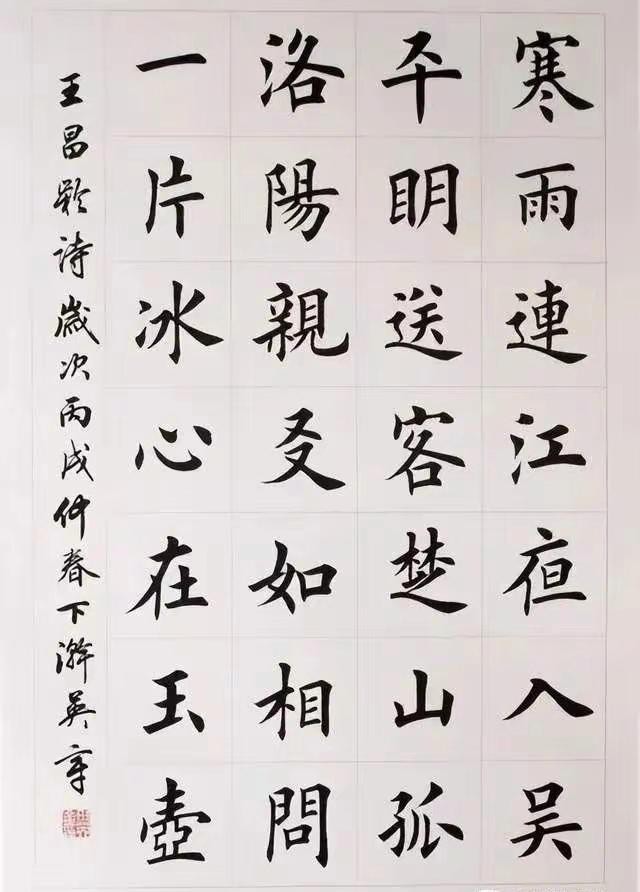 寒雨連江夜入吳
平明送客楚山孤
洛陽親友如相問
一片冰心在玉壺
王昌齡詩歲次丙戌仲春下澣英章